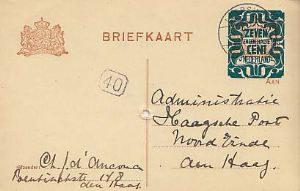 BRIEFKAART
ZEVEN
EN EEN HALVE
CENT
NEDERLAND
AAN
40
Administratie
Haagsche Post
Noord Einde
den Haag.
Ch. J. d'Ancona
178
den Haag